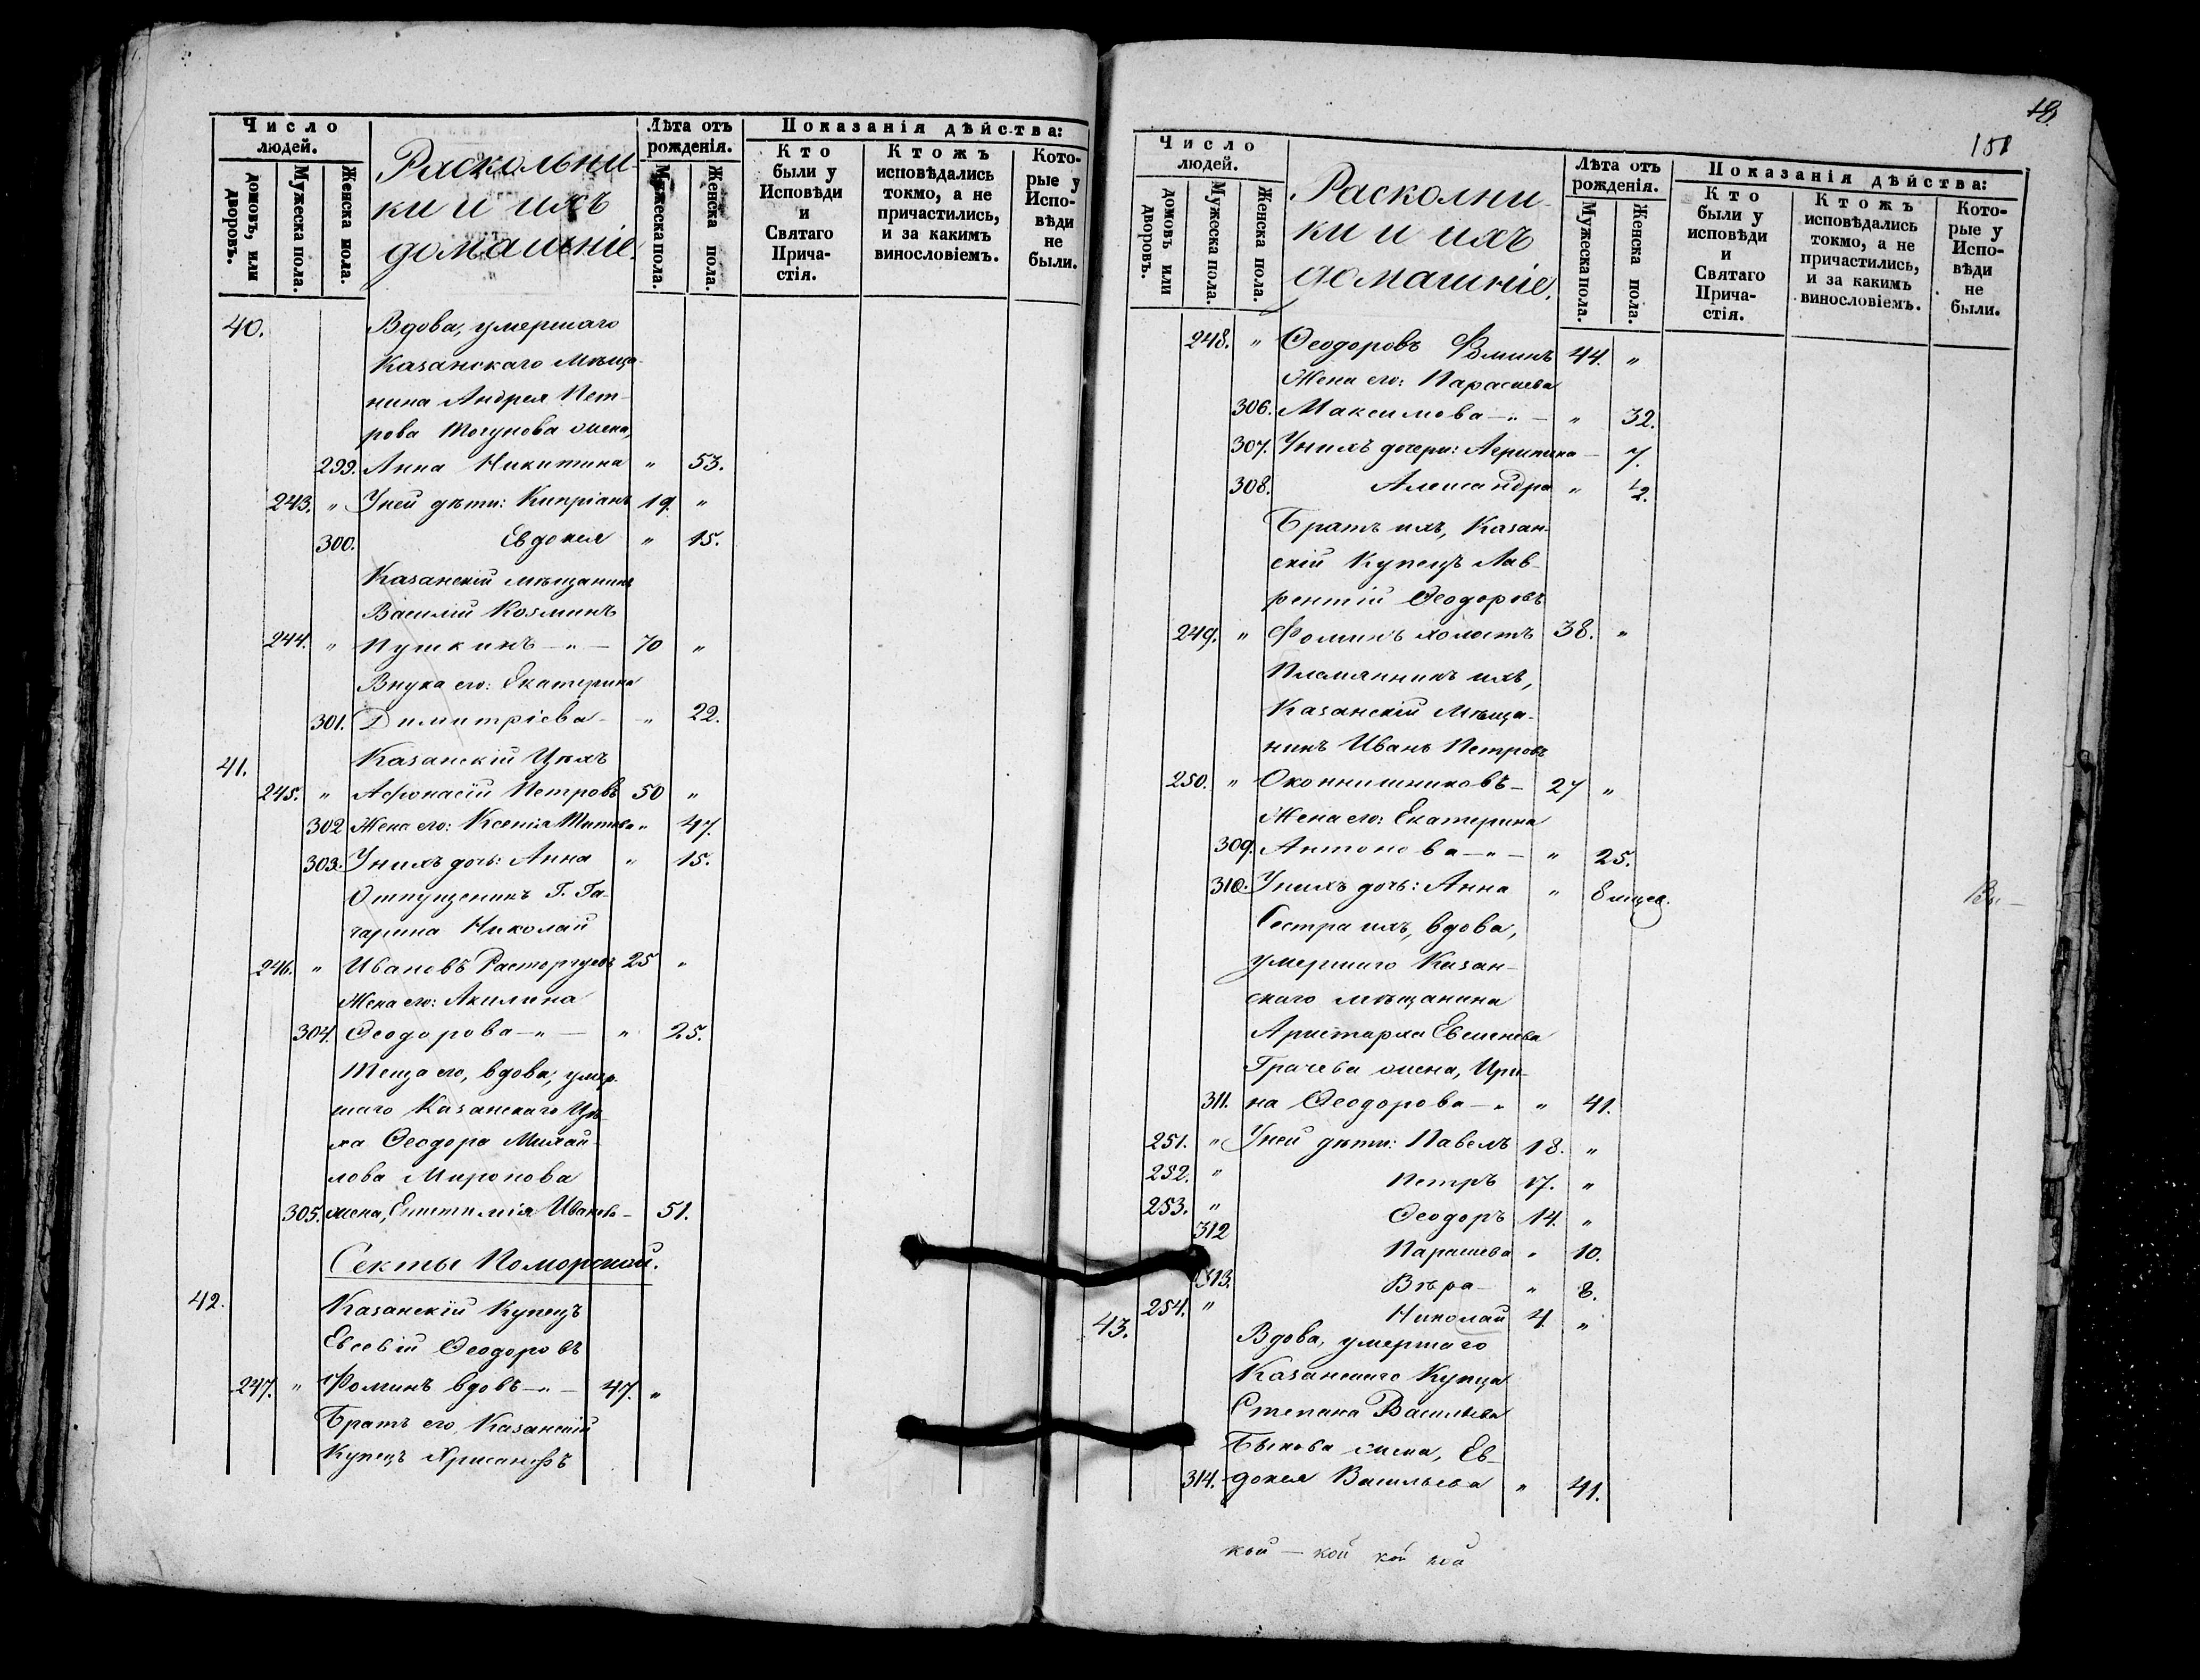 Число людей.
домовъ, или дворовъ.
Мужеска пола.
Женска пола.
Раскольни-
ки и ихъ
домашніе.
Лѣта отъ рожденія.
Мужеска пола.
Женска пола.
Показанія дѣйства:
Кто были у Исповѣди и Святаго Причастія.
Ктожъ исповѣдались токмо, а не причастились, и за какимъ винословіемъ.
Которые у Исповѣди не были.
40. Вдова, умершаго
Казанскаго Мѣща-
нина Андрея Пет-
рова жена,
299. Анна Никитина " 53.
243. " У ней дѣти: Кипріанъ 19. "
300. Евдокея " 15.
Казанскій мѣщанинъ
Василій Козминъ
244. " Пушкинъ - " - 70 "
Внука его: Екатерина
301. Димитріева - " 22.
41. Казанскій Цѣхъ
245. " Афонасій Петровъ 50 "
302 Жена его: Ксенія Титова " 47.
303. У нихъ дочь: Анна " 15.
Отпущеникъ Г. Га-
гарина Николай
246. " Ивановъ Расторгуевъ 25 "
Жена его: Акилина
304. Ѳеодорова - " - " 25.
Теща его, вдова, умер-
шаго Казанскаго Цѣ-
ха Ѳеодора Михай-
лова Миронова
305. жена, Епистимія Иванова - 51.
Секты Поморской.
42. Казанскій Купецъ
Евсевій Ѳеодоровъ
247. " Фоминъ вдовъ - " - 47. "
Братъ его, Казанскій
Купецъ Хрисанфъ
18.
151
Число людей.
домовъ или дворовъ.
Мужеска пола.
Женска пола.
Расколни-
ки и ихъ
домашніе.
Лѣта отъ рожденія.
Мужеска пола.
Женска пола.
Показанія дѣйства:
Кто были у исповѣди и Святаго Причастія.
Ктожъ исповѣдались токмо, а не причастились, и за какимъ винословіемъ.
Которые у Исповѣди не были.
248. " Ѳеодоровъ Фоминъ 44. "
Жена его: Параскева
306. Максимова - " - " 32.
307. У нихъ дочери: Агрипина - 7.
308. Александра " 1/2.
Братъ ихъ, Казан-
скій Купецъ Лав-
рентій Ѳеодоровъ
249. " Фоминъ холостъ 38. "
Племянникъ ихъ,
Казанскій Мѣща-
нинъ Иванъ Петровъ
250. " Оконнишниковъ - 27 "
Жена его: Екатерина
309. Антонова - " - " 25.
310. У нихъ дочь: Анна " 8 мцев.
Сестра ихъ, вдова,
умершаго Казан-
скаго мѣщанина
Аристарха Евсигнева
Грачева жена, Ири-
311. на Ѳеодорова - " " 41.
251. " У ней дѣти: Павелъ 18. "
252. " Петръ 17. "
253. " Ѳеодоръ 14. "
312 Параскева " 10.
313. Вѣра - " 8.
254. " Николай 4. "
43. Вдова, умершаго
Казанскаго Купца
Степана Васильева
Быкова жена, Ев-
314. докея Васильева " 41.
кой - кой кой кой